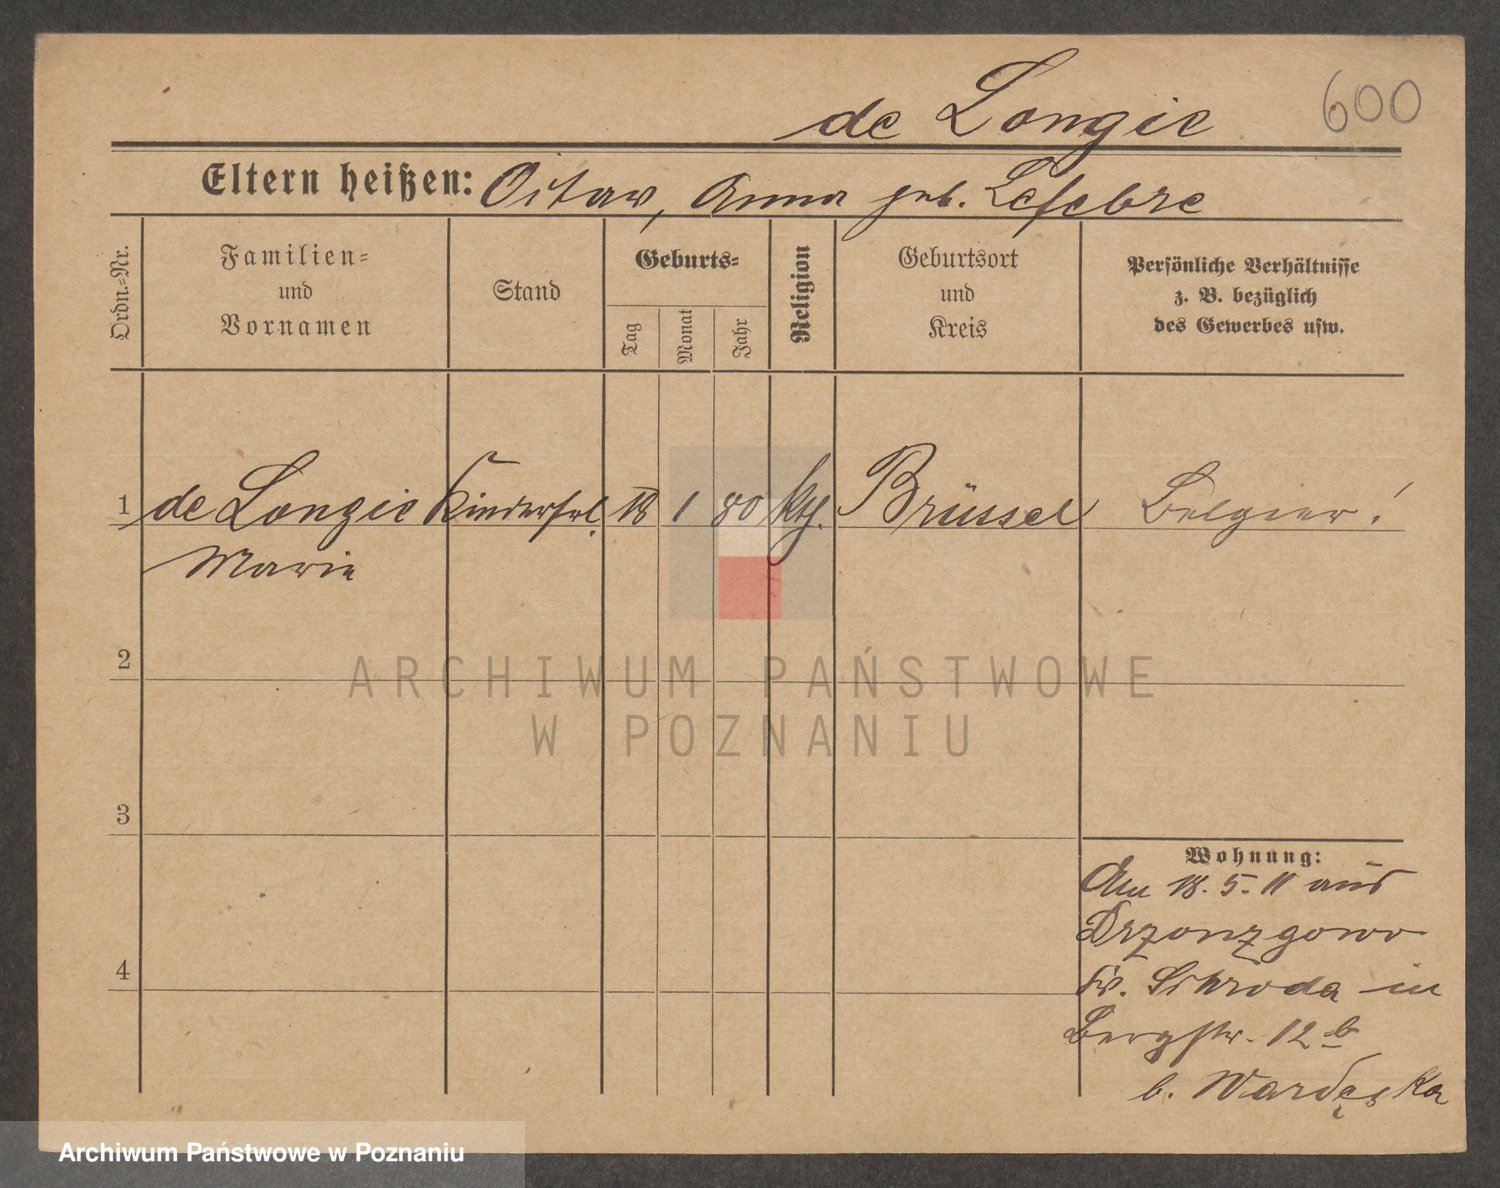 de Longie 600
Eltern heißen: Oitav, Anna geb. Lefebre
Ordn.-Nr.
Familien-
und
Vornamen
Stand
Geburts-
Tag
Monat
Jahr
Religion
Geburtsort
und
Kreis
Persönliche Verhältnisse
z. B. bezüglich
des Gewerbes usw.
1 de Longie Kinderfrl. 18 1 80 kth. Brüssel Belgier!
Marie
2
3
4
Wohnung:
Am 18. 5. 11 aus
Drzonzgowo
Kr. Schroda in
Bergstr. 12 b
b. Wardęska
ARCHIWUM PAŃSTWOWE
W POZNANIU
Archiwum Państwowe w Poznaniu